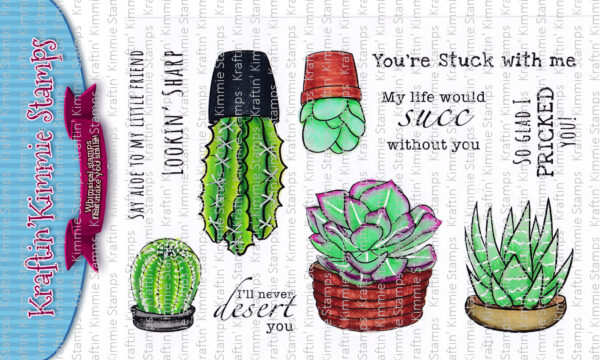 Kraftin' Kimmie Stamps
Whimsical stamps
that make you smile
SAY ALOE TO MY LITTLE FRIEND
LOOKIN' SHARP
You're Stuck with me
My life would
succ
without you
SO GLAD I
PRICKED
YOU!
I'll never
desert
you
Kraftin' Kimmie Stamps